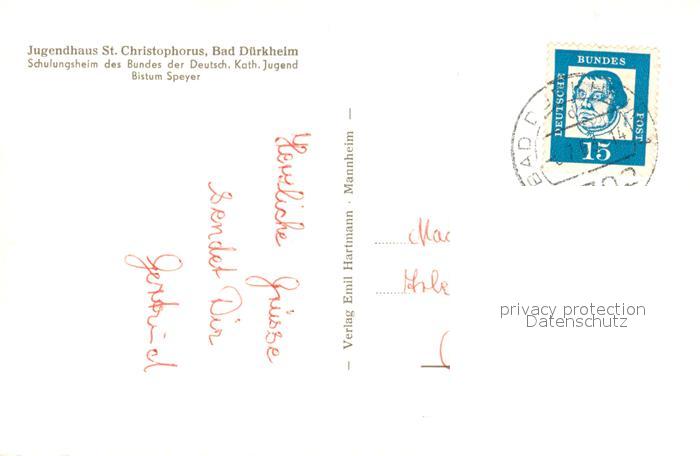 Jugendhaus St. Christophorus, Bad Dürkheim
Schulungsheim des Bundes der Deutsch. Kath. Jugend
Bistum Speyer
Herzliche Grüsse
sendet Dir
Gertrud
— Verlag Emil Hartmann · Mannheim —
DEUTSCHE BUNDES POST
15
BAD D
privacy protection
Datenschutz